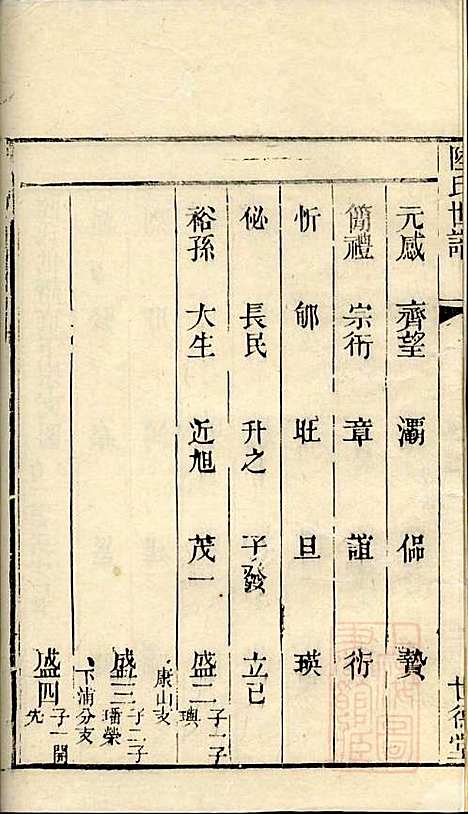 陸氏世譜
世德堂
元感 齊望 灞 侶 贄
簡禮 宗衍 章 誼 衍
忻 郇 旺 旦 瑛
佖 長民 升之 子發 立已
裕孫 大生 近旭 茂一 盛二 子一子
璵
康山支
盛三 子二子
璠榮
卞浦分支
盛四 子一開
先